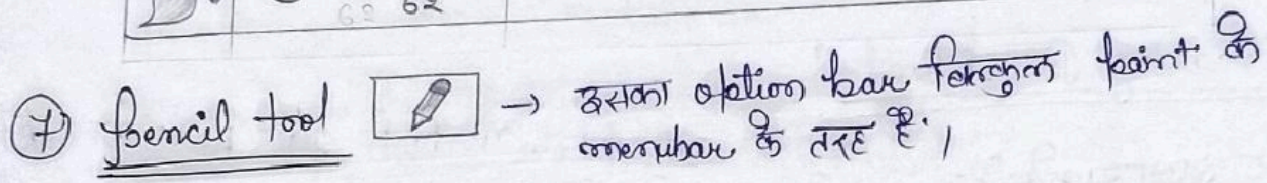 62 62
⑦ Pencil tool → इसका option bar बिल्कुल paint के
menubar के तरह है।